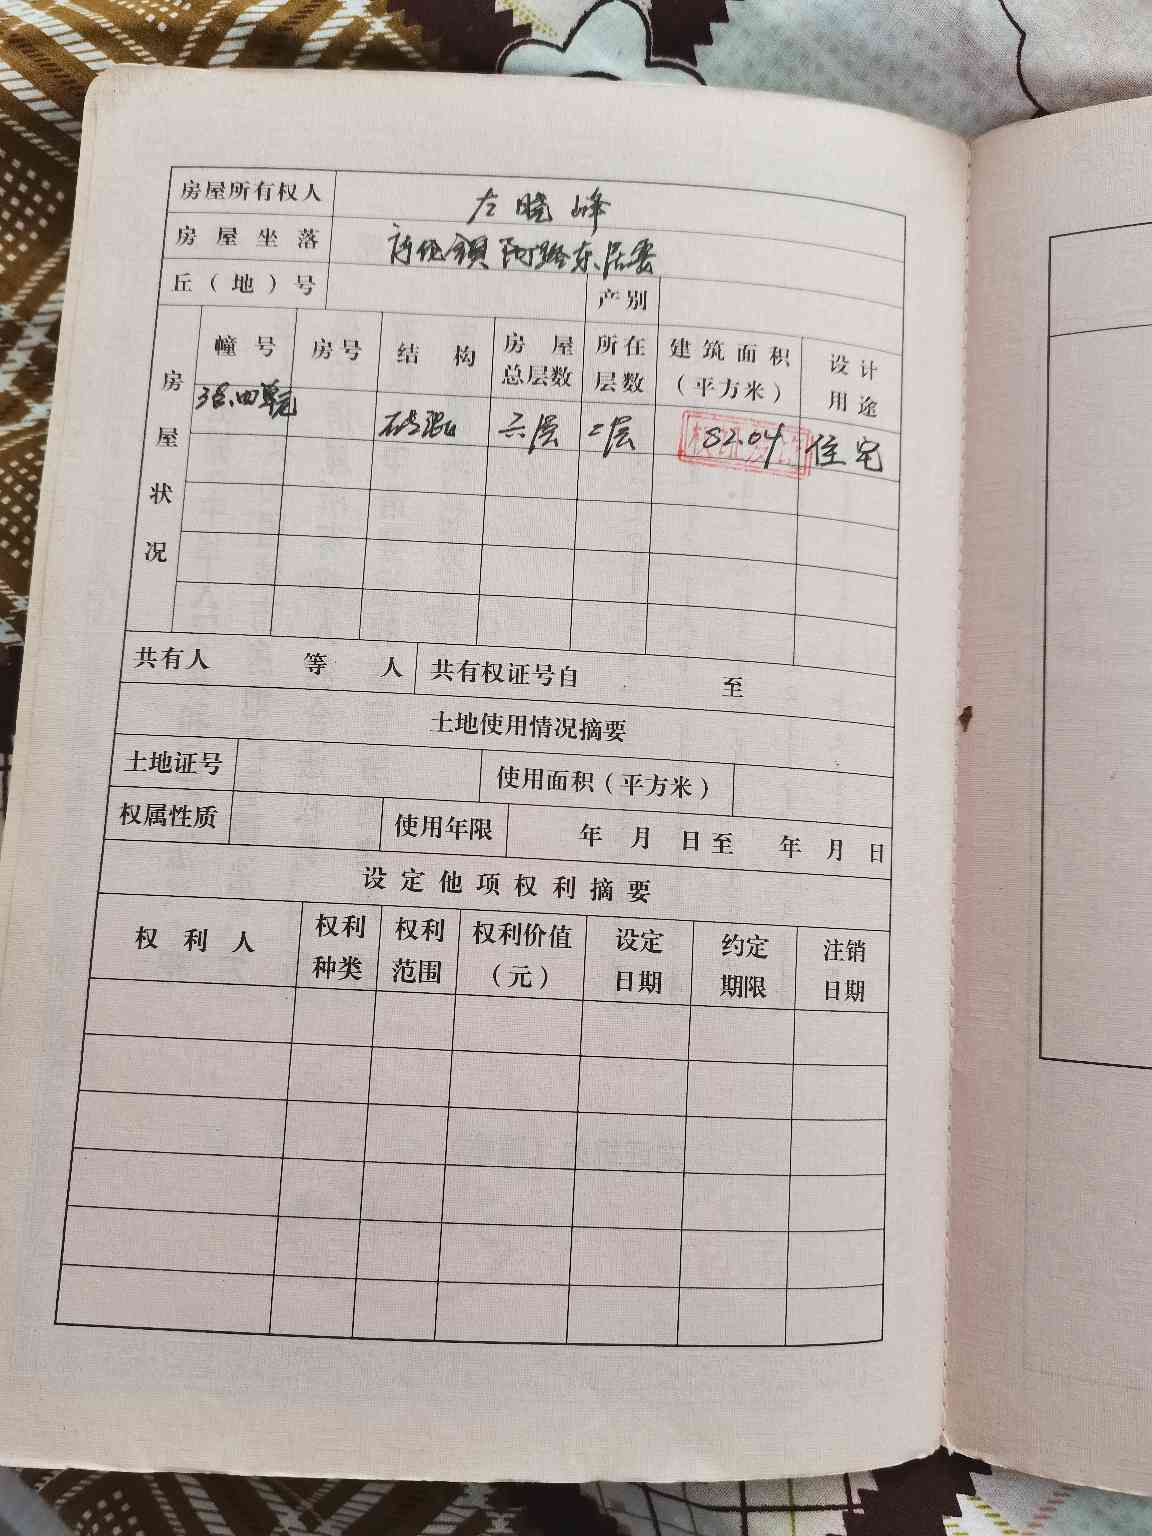 房屋所有权人 左晓峰
房屋坐落 镇 路东居委
丘（地）号 产别
房屋状况
幢号 房号 结构 房屋总层数 所在层数 建筑面积（平方米） 设计用途
3号.四单元 砖混 六层 二层 82.04 住宅
共有人 等 人 共有权证号自 至
土地使用情况摘要
土地证号 使用面积（平方米）
权属性质 使用年限 年 月 日至 年 月 日
设定他项权利摘要
权利人 权利种类 权利范围 权利价值（元） 设定日期 约定期限 注销日期